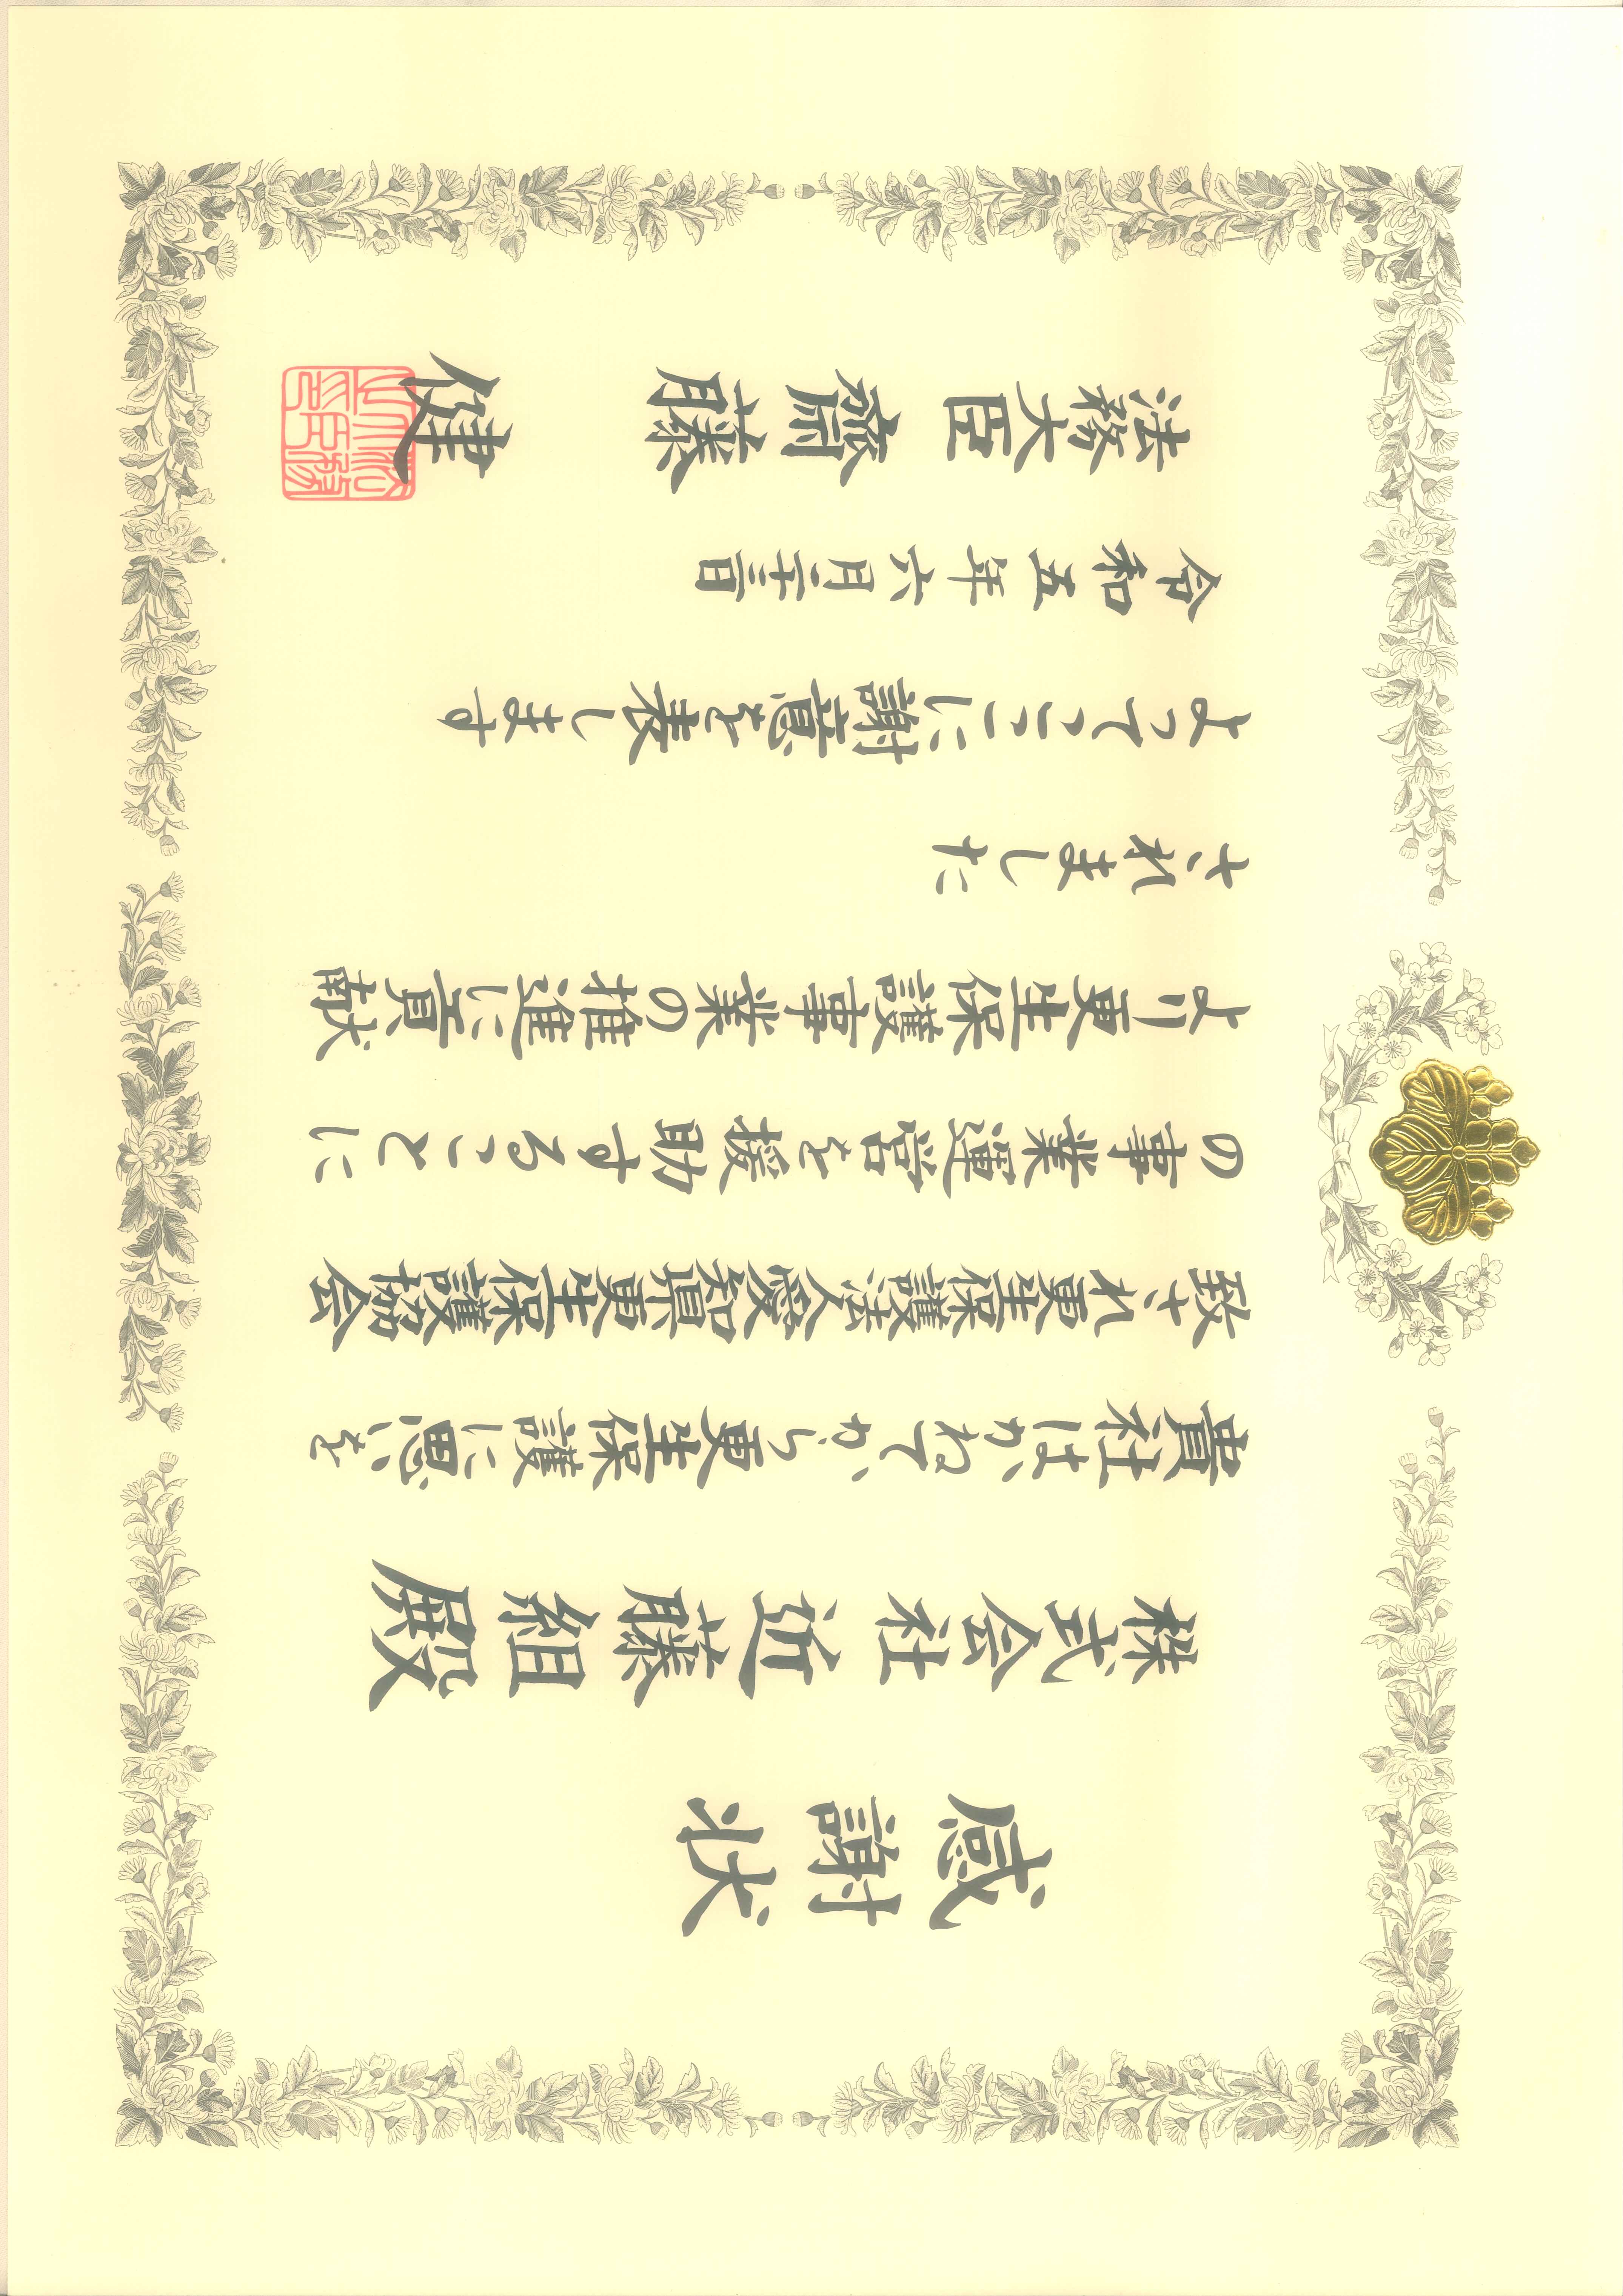 感謝状
株式会社近藤組殿
貴社はかねてから更生保護に思を
致され更生保護法人愛知県更生保護協会
の事業運営を援助することに
より更生保護事業の推進に貢献
されました
よってここに謝意を表します
令和五年六月二十三日
法務大臣齋藤健